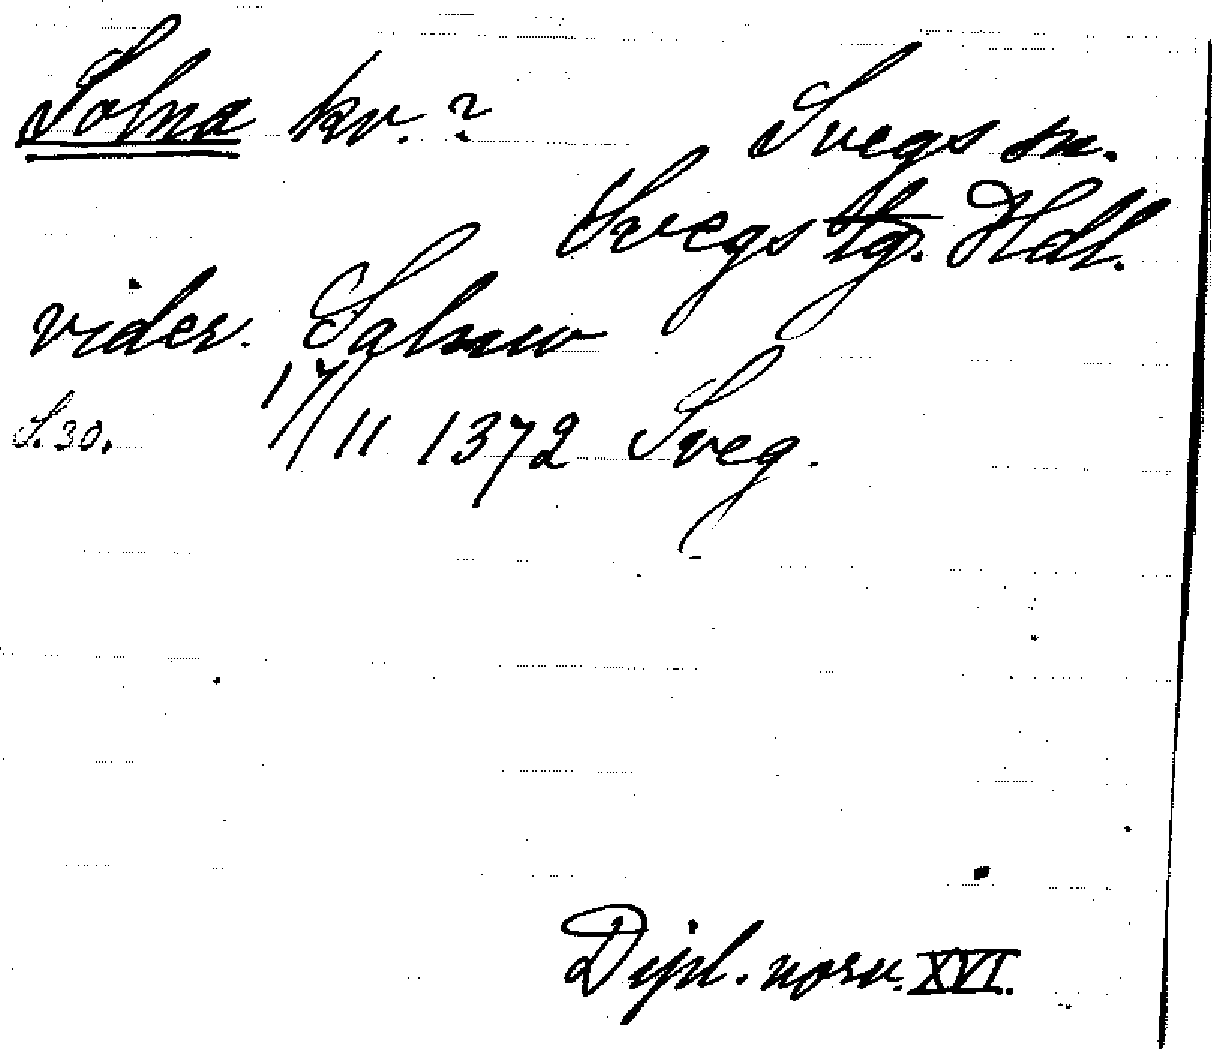 Solna kv. ? Svegs sn.
Svegs tg. Hdl.
vider. Salnæ
S. 30. 17/11 1372 Sveg.
Dipl. norv. XVI.